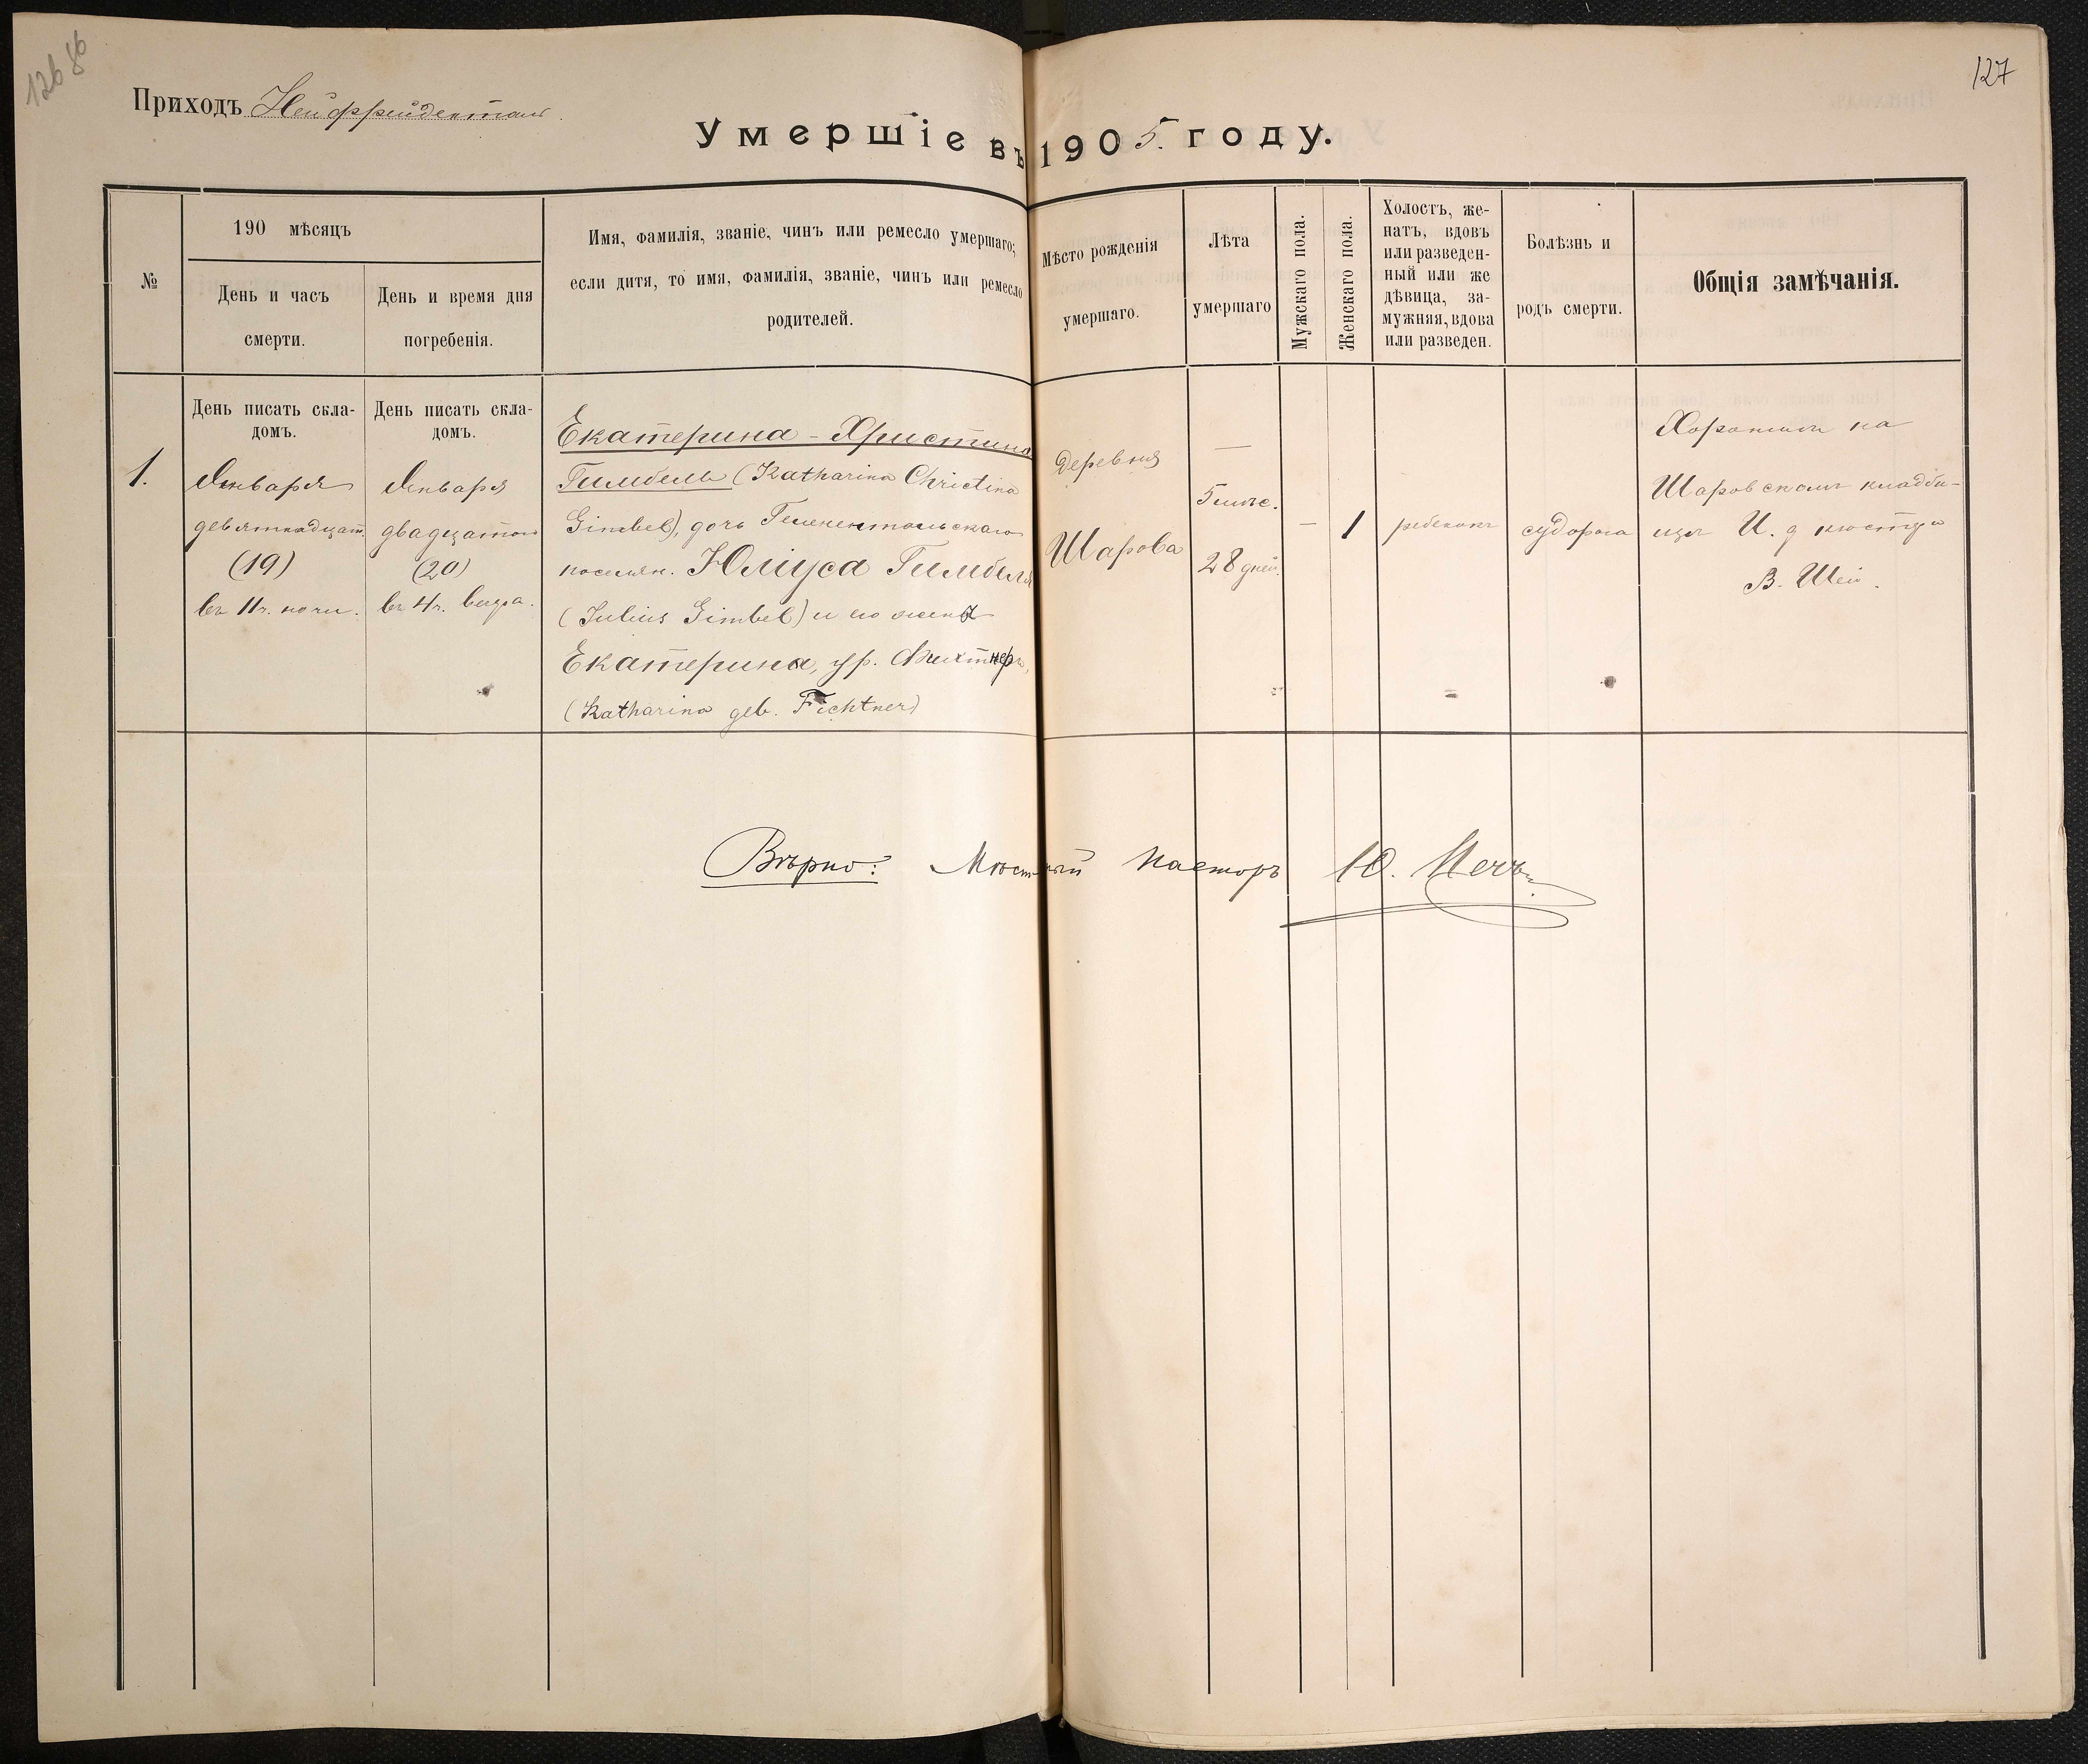 126 86
127
Приходъ Нейффрейденталь.
Умершіе въ 1905. году.
№
190 мѣсяцъ
День и часъ
смерти.
День и время дня
погребенія.
Имя, фамилія, званіе, чинъ или ремесло умершаго;
если дитя, то имя, фамилія, званіе, чинъ или ремесло
родителей.
Мѣсто рожденія
умершаго.
Лѣта
умершаго
Мужскаго пола.
Женскаго пола.
Холостъ, же-
натъ, вдовъ
или разведен-
ный или же
дѣвица, за-
мужняя, вдова
или разведен.
Болѣзнь и
родъ смерти.
Общія замѣчанія.
День писать скла-
домъ.
День писать скла-
домъ.
1.
Января
девятнадцат.
(19)
въ 11 ч. ночи.
Января
двадцатого
(20)
въ 4 ч. вечера.
Екатерина-Христина
Гимбель (Katharina Christina
Gimbel), дочь Геленентальскаго
поселян. Юліуса Гимбеля
(Julius Gimbel) и его жены
Екатерина, ур. Фихтнеръ,
(Katharina geb. Fichtner)
Деревня
Шарова
—
5 мѣс.
28 дней.
—
1
ребенокъ
судорога
Хоронили на
Шаровскомъ кладби-
щѣ И. д. кюстера
В. Шей.
Вѣрно: Мѣстный Пасторъ Ю.